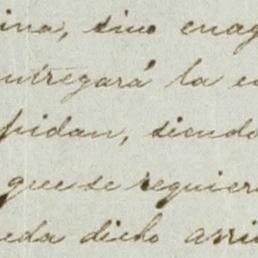 ina, sino enag
ntregará la e
pidan, siendo
que se requier
eda dicho arri